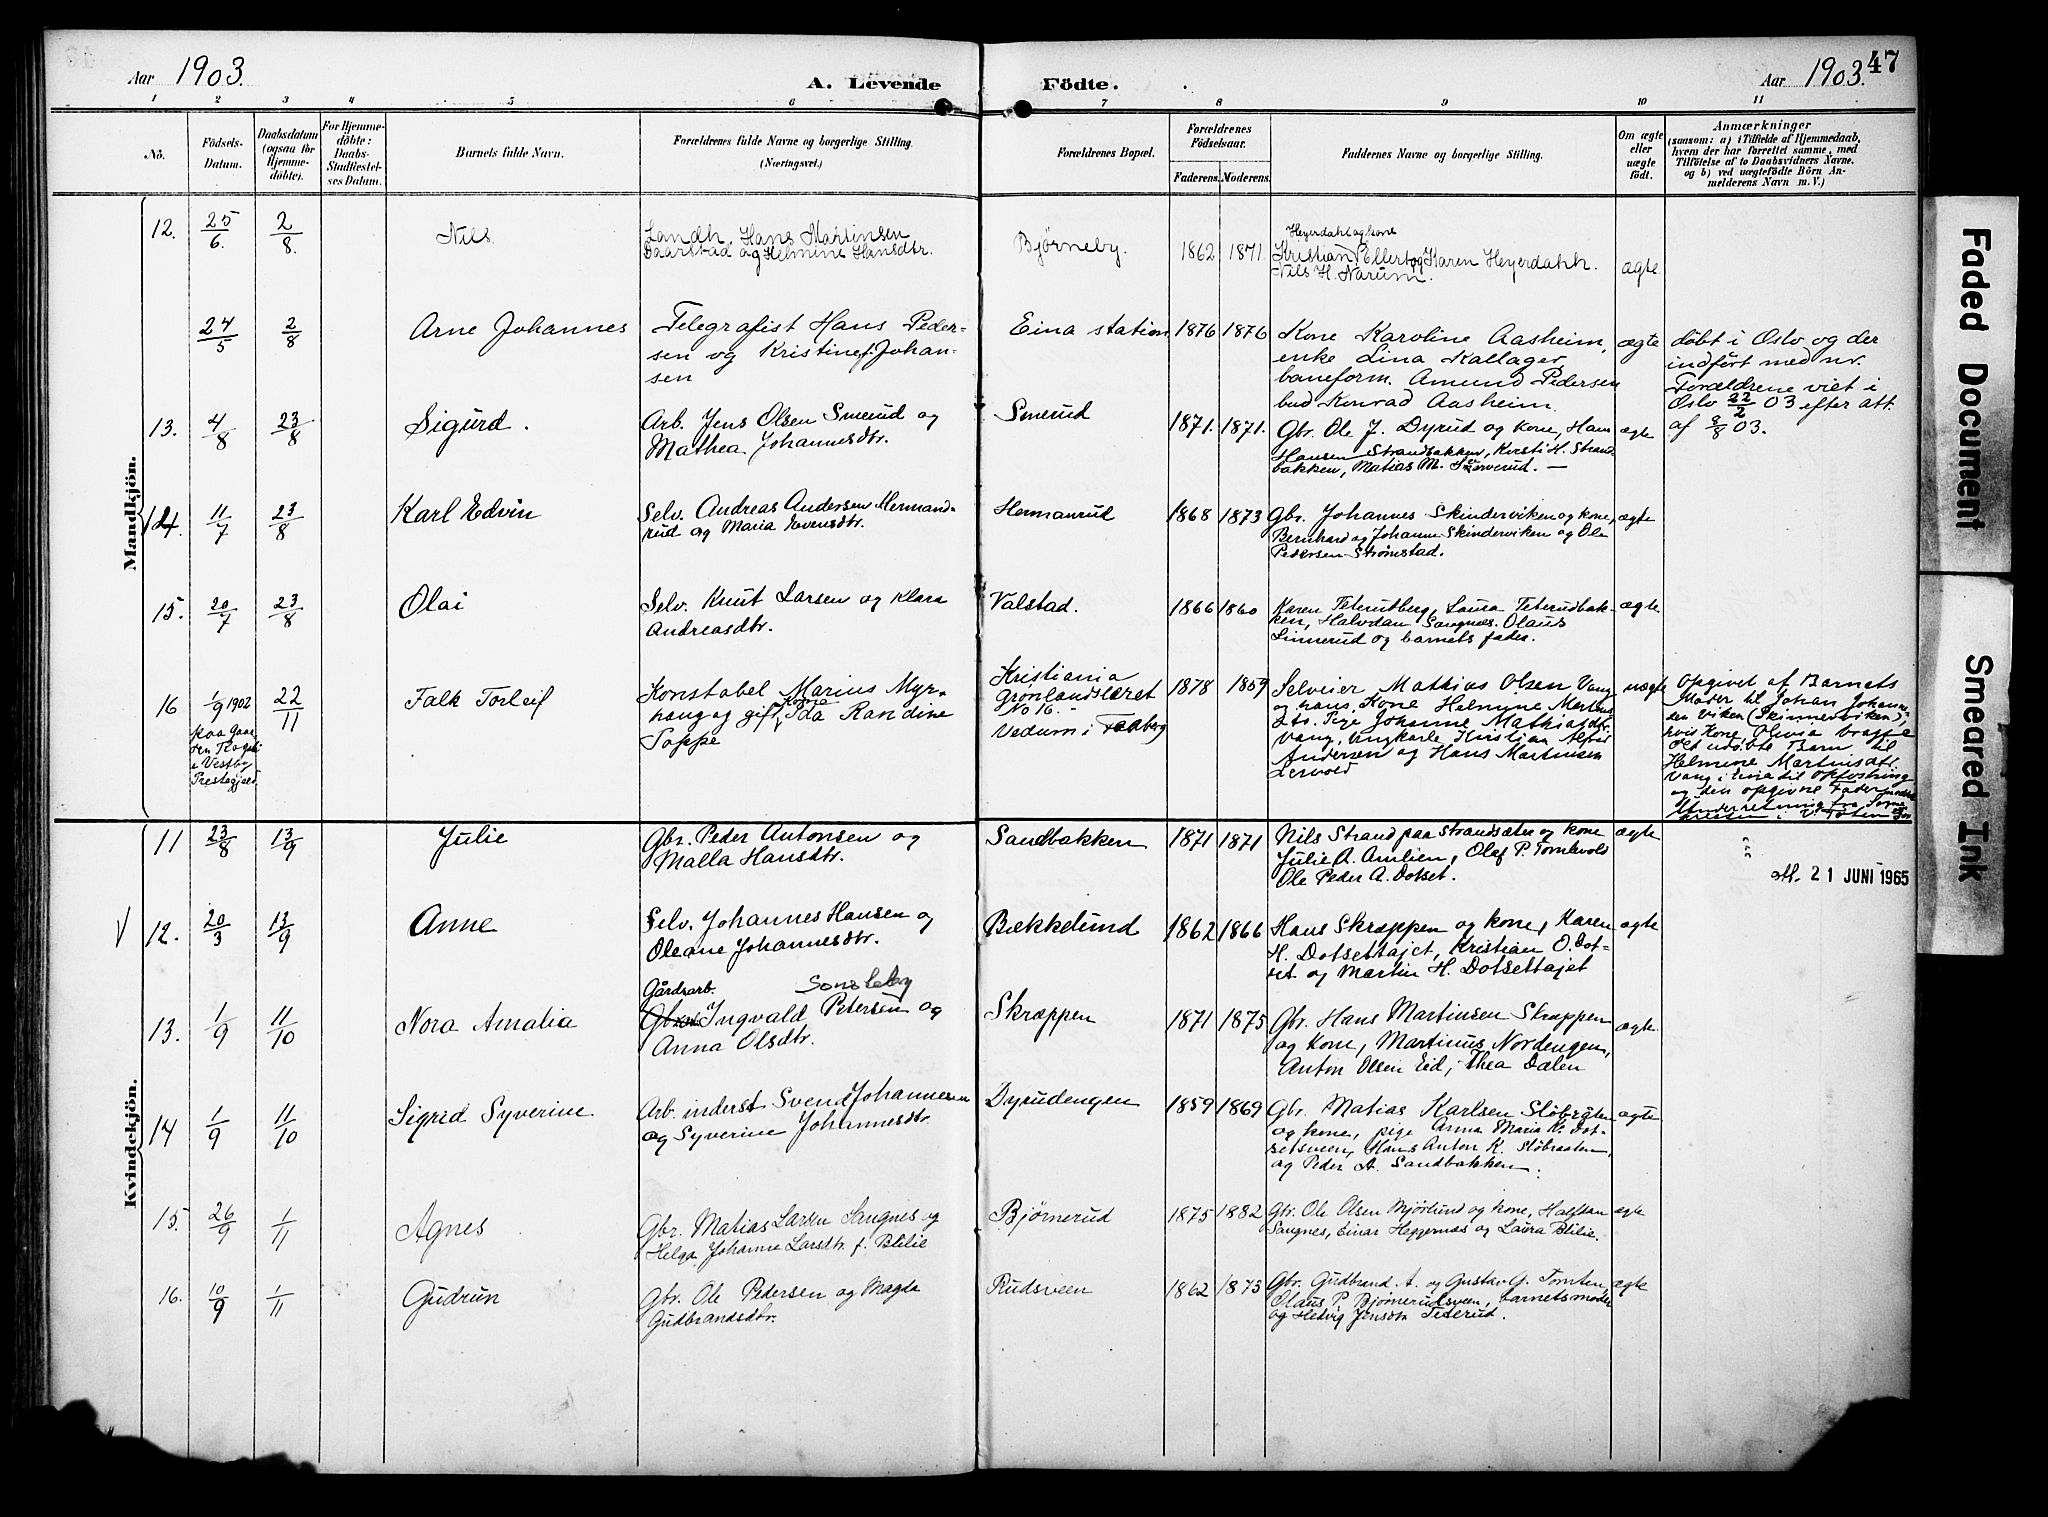 Aar 1903.
A. Levende
Födte.
Aar 1903.
47
1 2 3 4 5 6 7 8 9 10 11
No.
Födsels-
Datum.
Daabsdatum
(ogsaa for
Hjemme-
döbte).
For Hjemme-
döbte:
Daabs-
Stadfæstel-
ses Datum.
Barnets fulde Navn.
Forældrenes fulde Navne og borgerlige Stilling.
(Næringsvei.)
Forældrenes Bopæl.
Forældrenes
Födselsaar.
Faderens. Moderens.
Faddernes Navne og borgerlige Stilling.
Om ægte
eller
uægte
födt.
Anmærkninger
(saasom: a) i Tilfælde af Hjemmedaab,
hvem der har forrettet samme, med
Tilföielse af to Daabsvidners Navne.
og b) ved uægtefödte Börn An-
melderens Navn m. V.)
Mandkjön.
12. 25/6. 2/8. Nils
Landh. Hans Martinsen
Daarstad og Helmine Hansdtr.
Bjørneby. 1862 1871.
Heyerdahl og kone
Kristian, Ellert og Karen Heyerdahl.
Nils H. Narum.
ægte
24/5 2/8 Arne Johannes
Telegrafist Hans Peder-
sen og Kristine f. Johan-
sen
Eina station 1876 1876
Kone Karoline Aasheim,
enke Lina Kallager,
baneform. Amund Pedersen
bud Konrad Aasheim.
ægte
døbt i Oslo og der
indført med nr.
Forældrene viet i
Oslo 22/2 03 efter att.
af 8/8 03.
13. 4/8 23/8 Sigurd.
Arb. Jens Olsen Smerud og
Mathea Johannesdtr.
Smerud 1871. 1871.
Gbr. Ole J. Dyrud og kone, Hans
Hansen Strandbakken, Kirsti H. Strand
bakken, Matias M.
ægte
14. 11/7 23/8 Karl Edvin
Selv. Andreas Andersen Hermand-
rud og Maria Evensdtr.
Hermanrud 1868 1873
Gbr. Johannes Skinderviken og kone,
Bernhard og Johanne Skinderviken og Ole
Pedersen Strømstad.
ægte
15. 20/7 23/8 Olai
Selv. Knut Larsen og Klara
Andreasdtr.
Valstad. 1866 1860
Karen Teterudberg, Laura Teterudbak-
ken, Halvdan Sangnæs. Olaus
Linnerud og barnets fader.
ægte
16 1/9 1902 22/11 Falk Torleif
paa Gaar-
i Vestby
Prestegjeld
Konstabel Marius Myr-
haug og gift Kone Ida Randine
Toppe
Kristiania
Grønlandsleret
No 16. -
Vedum i Faaberg
1878 1859
Selveier Mathias Olsen Vang
og hans Kone Helmine Martins
dtr. Pige Johanne Mathiasdtr.
Vang, Ungkarle Kristian Alfred
Andersen og Hans Martinsen
Lervold
uægte
Opgivet af Barnets
Moder til Johan Johann-
sen Viken (Skinnerviken),
hvis Kone, Olivia bragte
det udøbte Barn til
Helmine Martinsdtr.
Vang i Eina til Opfostring
og den opgivne Fader
Underretning fra Sogne
Kvindekjön.
11 23/8 13/9 Julie
Gbr. Peder Antonsen og
Malla Hansdtr.
Sandbakken 1871 1871
Nils Strand paa Strandsætre og kone
Julie A. Amlien, Olaf P. Tomlevold
Ole Peder A. Dotset.
ægte
att. 21 JUNI 1965
V 12. 20/3 13/9 Anne
Selv. Johannes Hansen og
Oleane Johannesdtr.
Bækkelund 1862 1866
Hans Skræppen og kone, Karen
H. Dotsettajet, Kristian O. Dot-
set og Martin H. Dotsettajet
ægte
13. 1/9 11/10 Nora Amalia
Gårdsarb. Sønsteby
Ingvald Petersen og
Anna Olsdtr.
Skræppen 1871 1875
Gbr. Hans Martinsen Skræppen
og kone, Martinus Nordengen,
Anton Olsen Eid, Thea Dalen
ægte
14 1/9 11/10 Sigrid Syverine
Arb. inderst Svend Johannesen
og Syverine Johannesdtr.
Dyrudengen 1859 1869
Gbr. Matias Karlsen Sløbråten
og kone, pige Anna Maria K. Dot-
setsveen, Hans Anton K. Sløbraaten,
og Peder A. Sandbakken.
ægte
15. 26/9 1/11 Agnes
Gbr. Matias Larsen Sangnes og
Helga Johanne Larsdtr. f. Blilie
Bjørnerud 1875 1882
Gbr. Ole Olsen Mjørlund og kone, Halfdan
Sangnes, Einar Heggernæs og Laura Blilie.
ægte
16. 10/9 1/11 Gudrun
Gbr. Ole Pedersen og Magda
Gudbrandsdtr.
Rudsveen 1862 1873
Gbr. Gudbrand A. og Gustav G. Tomten,
Olaus P. Bjørnerudsveen, barnets moder
og Hedvig Jensdtr Teterud.
ægte
Faded Document
Smeared Ink